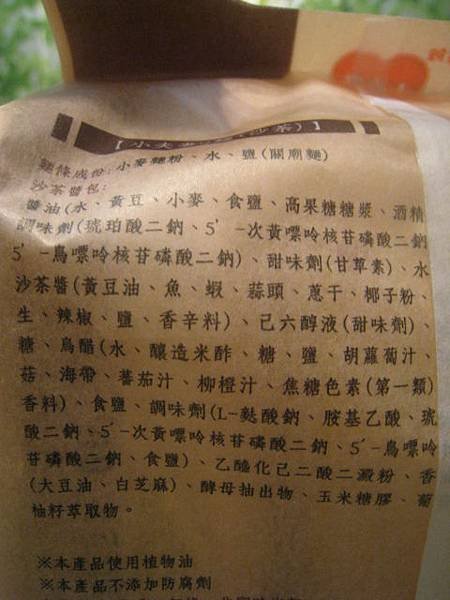 麵條成份:小麥麵粉、水、鹽(關廟麵)
沙茶醬包:
醬油(水、黃豆、小麥、食鹽、高果糖糖漿、酒精
調味劑(琥珀酸二鈉、5'-次黃嘌呤核苷磷酸二鈉
5'-鳥嘌呤核苷磷酸二鈉)、甜味劑(甘草素)、水
沙茶醬(黃豆油、魚、蝦、蒜頭、蔥干、椰子粉、
生、辣椒、鹽、香辛料)、己六醇液(甜味劑)、
糖、烏醋(水、釀造米酢、糖、鹽、胡蘿蔔汁、
菇、海帶、蕃茄汁、柳橙汁、焦糖色素(第一類)
香料)、食鹽、調味劑(L-麩酸鈉、胺基乙酸、琥
酸二鈉、5'-次黃嘌呤核苷磷酸二鈉、5'-鳥嘌呤
苷磷酸二鈉、食鹽)、乙醯化己二酸二澱粉、香
(大豆油、白芝麻)、酵母抽出物、玉米糖膠、葡
柚籽萃取物。
※本產品使用植物油
※本產品不添加防腐劑